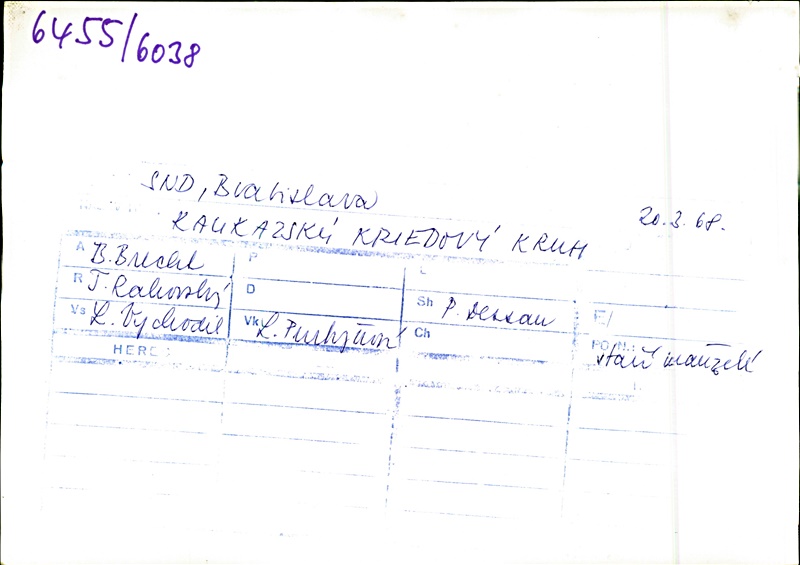 6455/6038
SND, Bratislava
20.3.68.
KAUKAZSKÝ KRIEDOVÝ KRUH
A B. Brecht P
R T. Rakovský D Sh P. Dessau F/
Vs L. Vychodil Vk L. Purkyňová Ch
HERCI starí manželé